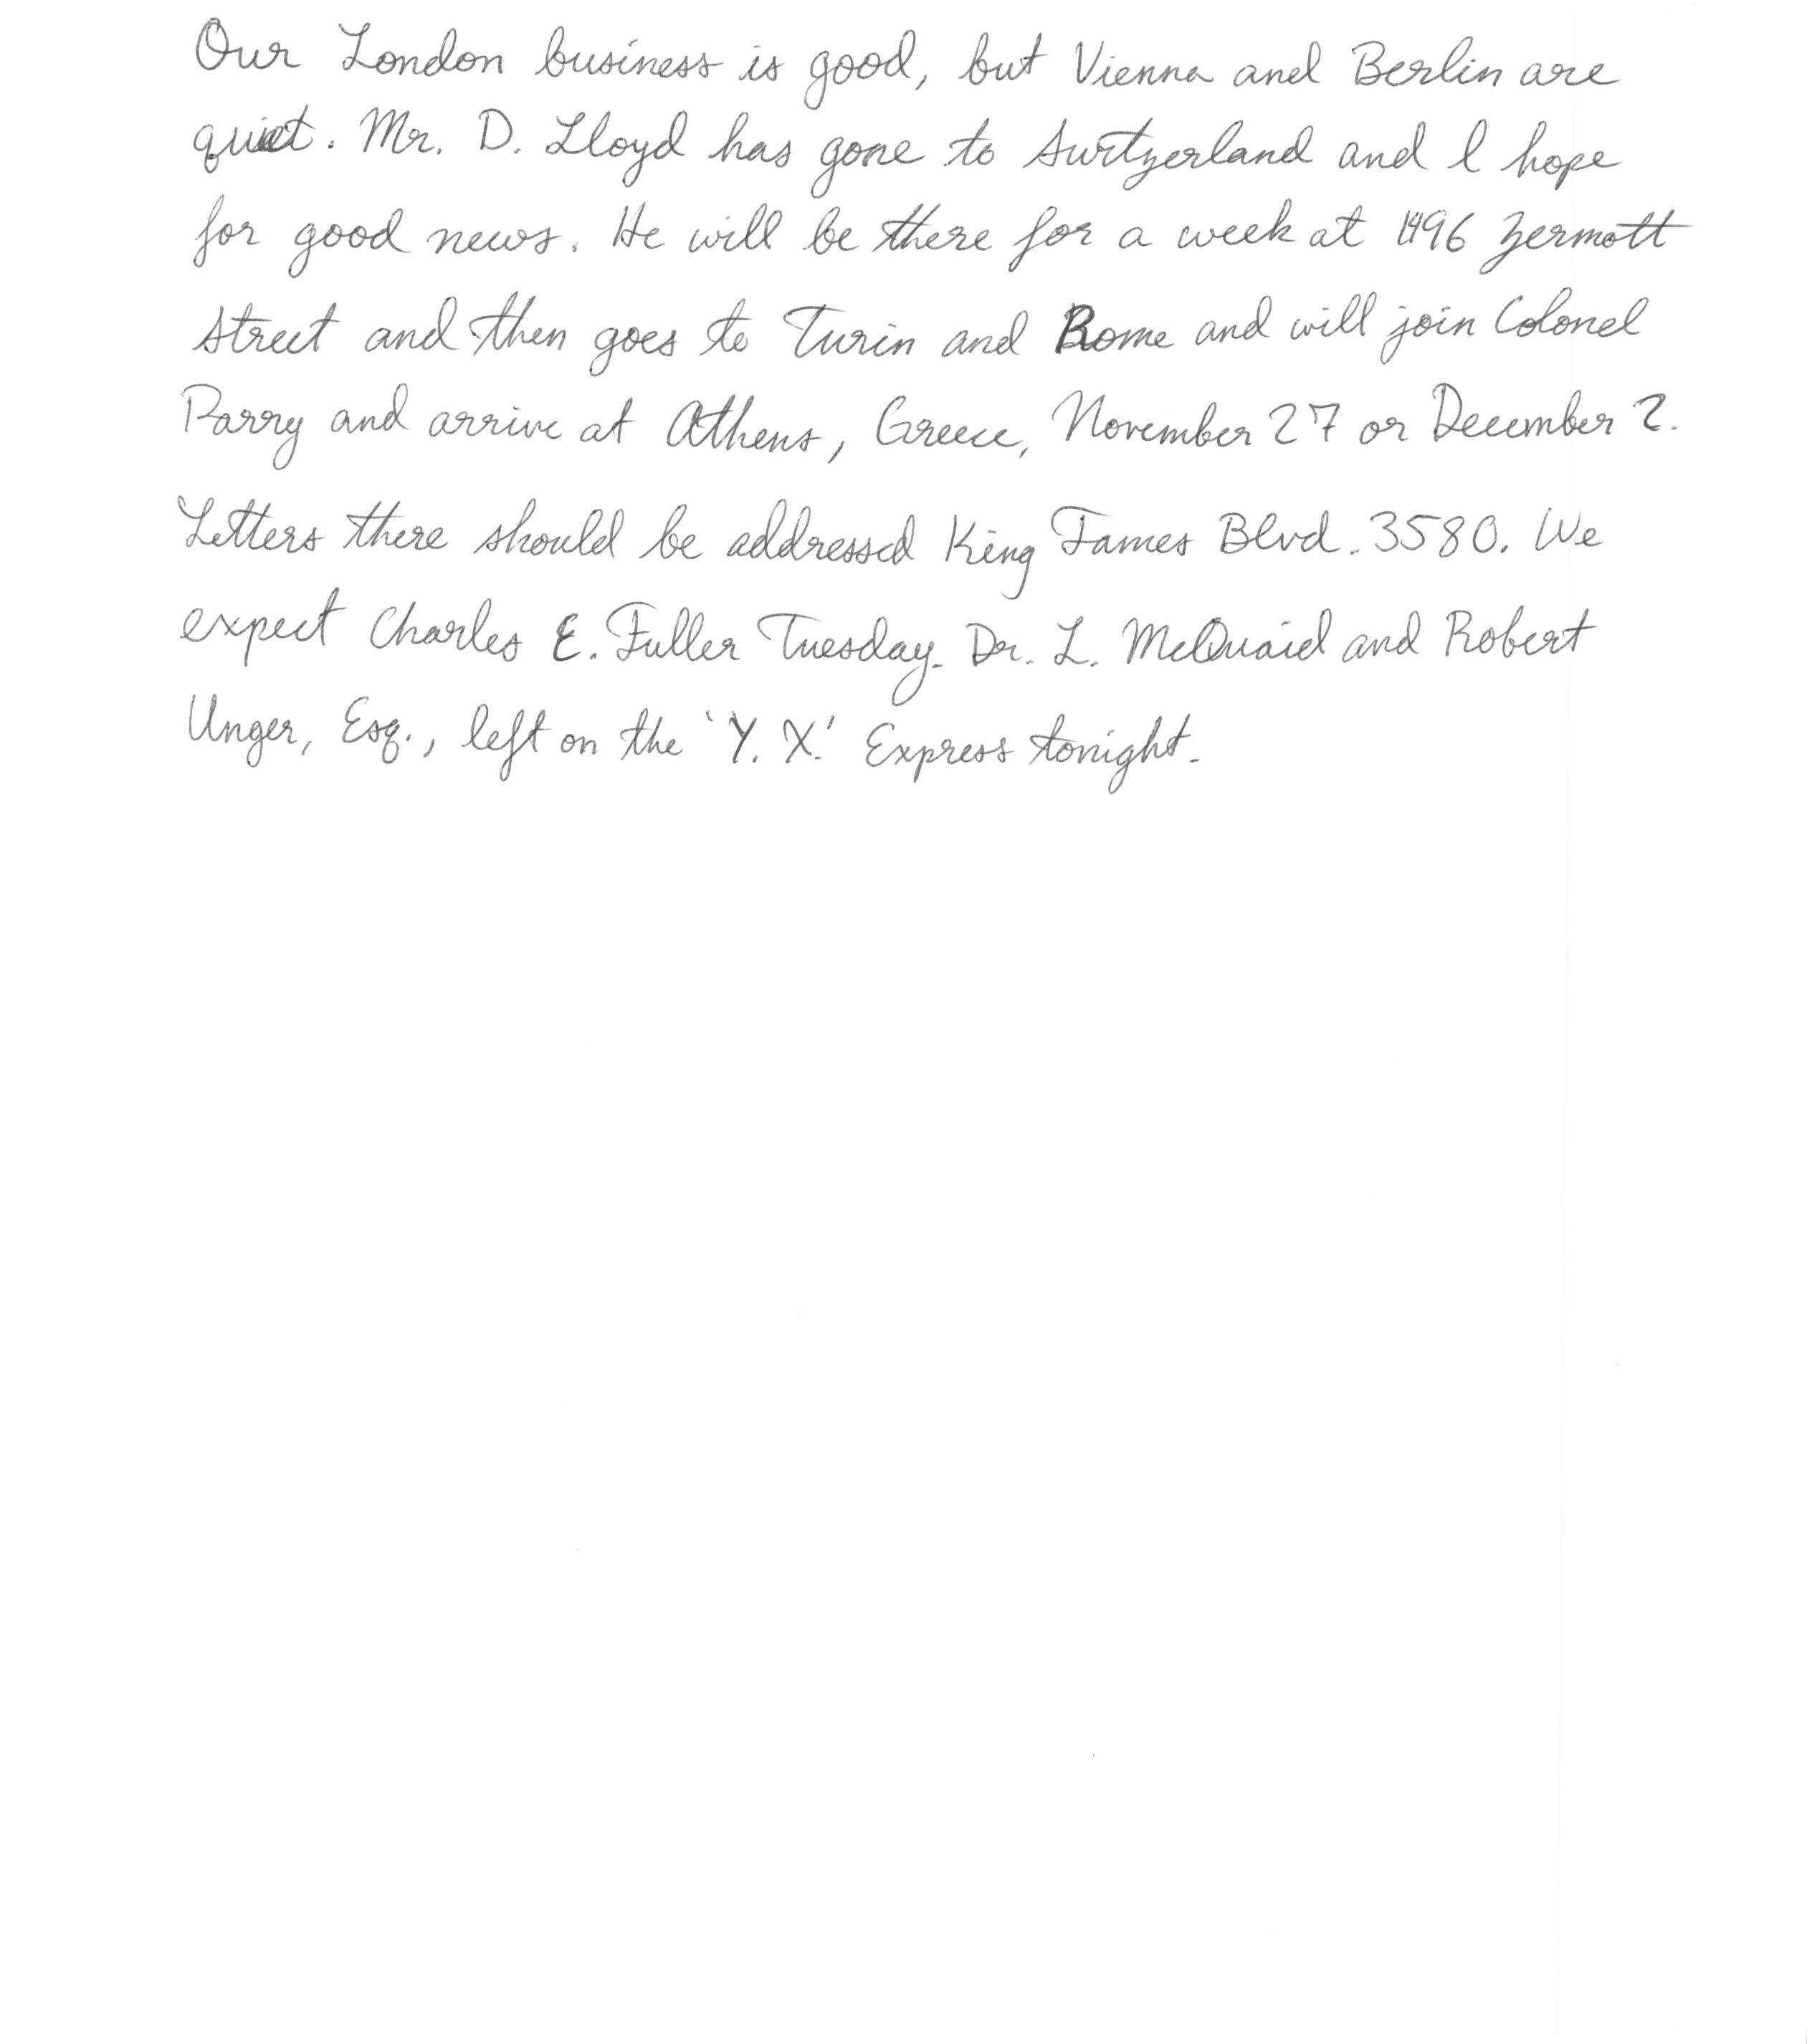 Our London business is good, but Vienna and Berlin are
quiet. Mr. D. Lloyd has gone to Switzerland and I hope
for good news. He will be there for a week at 1496 Zermott
Street and then goes to Turin and Rome and will join Colonel
Parry and arrive at Athens, Greece, November 27 or December 2.
Letters there should be addressed King James Blvd. 3580. We
expect Charles E. Fuller Tuesday. Dr. L. McQuaid and Robert
Unger, Esq., left on the 'Y. X.' Express tonight.